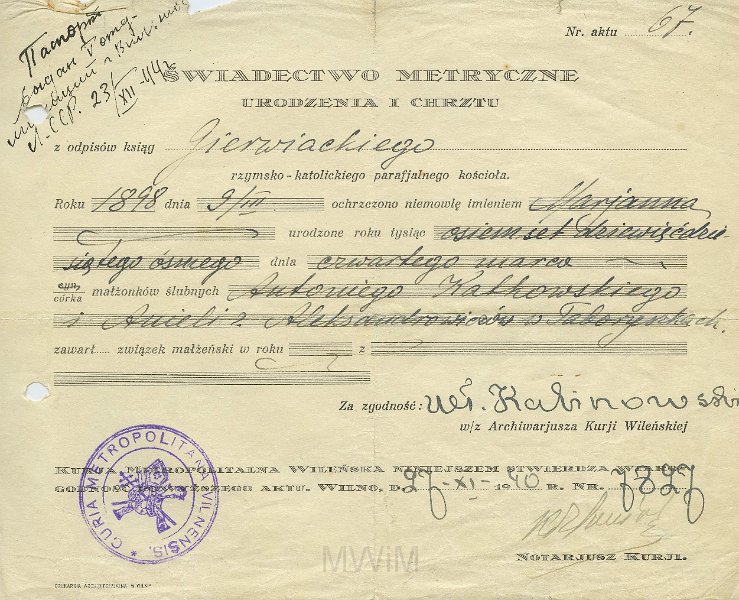 Nr. aktu 67.
Паспорт
23/XII-44г
ŚWIADECTWO METRYCZNE
URODZENIA I CHRZTU
z odpisów ksiąg Gierwiackiego
rzymsko-katolickiego parafjalnego kościoła.
Roku 1898 dnia 9/III ochrzczono niemowlę imieniem Marjanna
urodzone roku tysiąc osiemset dziewięćdzie
siątego ósmego dnia czwartego marca
syn
córka małżonków ślubnych Antoniego Kalkowskiego
i Anieli z Aleksandrowiczów w Taborynkach.
zawart..... związek małżeński w roku z
Za zgodność: Wł. Kalinowski
w/z Archiwarjusza Kurji Wileńskiej
KURJA METROPOLITALNA WILEŃSKA NINIEJSZEM STWIERDZA WIARO-
GODNOŚĆ POWYŻSZEGO AKTU. WILNO, D. 27-XI-1940 R. NR. 7827
CURIA METROPOLITANA VILNENSIS.
NOTARJUSZ KURJI.
MWiM
DRUKARNIA ARCHIDIECEZJALNA W WILNIE